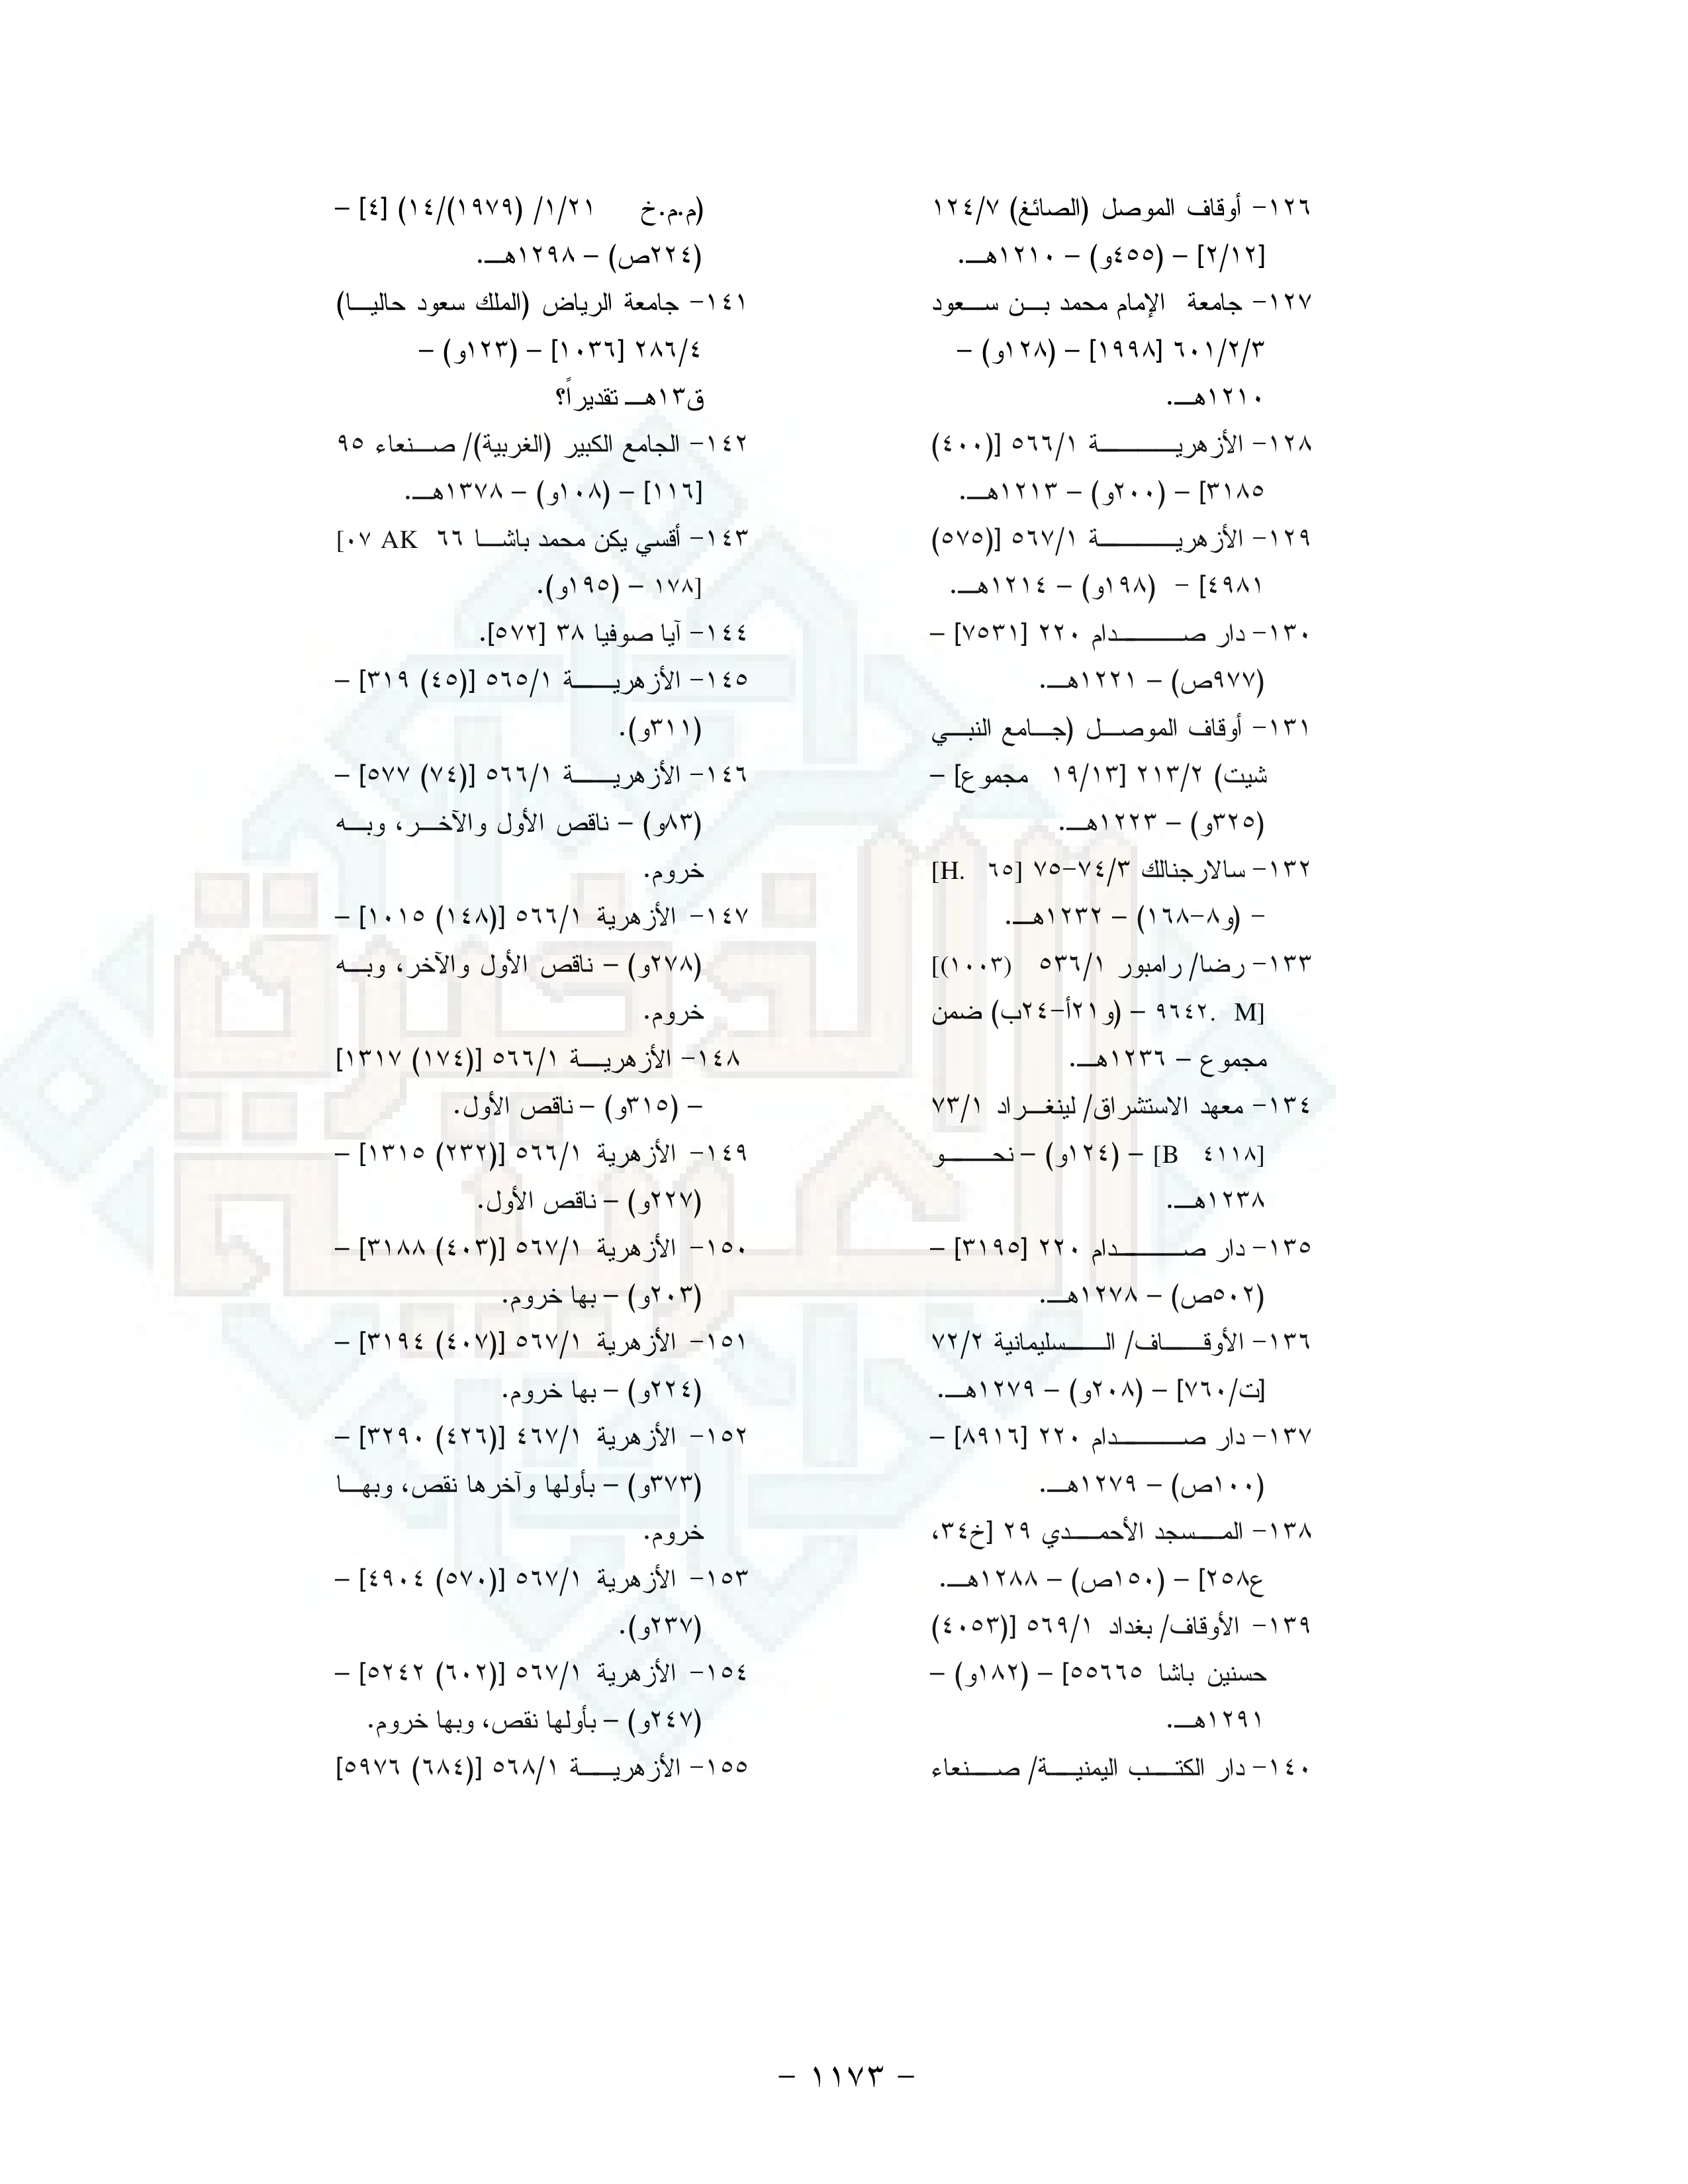 ١٢٦- أوقاف الموصل (الصائغ) ١٢٤/٧
[٢/١٢] – (٤٥٥و) – ١٢١٠هـ.
١٢٧- جامعة الإمام محمد بن سعود
٦٠١/٢/٣ [١٩٩٨] – (١٢٨و) –
١٢١٠هـ.
١٢٨- الأزهرية ٥٦٦/١ [(٤٠٠)
٣١٨٥] – (٢٠٠و) – ١٢١٣هـ.
١٢٩- الأزهرية ٥٦٧/١ [(٥٧٥)
٤٩٨١] – (١٩٨و) – ١٢١٤هـ.
١٣٠- دار صدام ٢٢٠ [٧٥٣١] –
(٩٧٧ص) – ١٢٢١هـ.
١٣١- أوقاف الموصل (جامع النبي
شيت) ٢١٣/٢ [١٩/١٣ مجموع] –
(٣٢٥و) – ١٢٢٣هـ.
١٣٢- سالارجنالك ٧٤/٣-٧٥ [٦٥ H.]
– (و٨-١٦٨) – ١٢٣٢هـ.
١٣٣- رضا/ رامبور ٥٣٦/١ [(١٠٠٣)
٩٦٤٢. M] – (و٢١أ-٢٤ب) ضمن
مجموع – ١٢٣٦هـ.
١٣٤- معهد الاستشراق/ لينغراد ٧٣/١
[B ٤١١٨] – (١٢٤و) – نحو
١٢٣٨هـ.
١٣٥- دار صدام ٢٢٠ [٣١٩٥] –
(٥٠٢ص) – ١٢٧٨هـ.
١٣٦- الأوقاف/ السليمانية ٧٢/٢
[ت/٧٦٠] – (٢٠٨و) – ١٢٧٩هـ.
١٣٧- دار صدام ٢٢٠ [٨٩١٦] –
(١٠٠ص) – ١٢٧٩هـ.
١٣٨- المسجد الأحمدي ٢٩ [خ٣٤،
ع٢٥٨] – (١٥٠ص) – ١٢٨٨هـ.
١٣٩- الأوقاف/ بغداد ٥٦٩/١ [(٤٠٥٣)
حسنين باشا ٥٥٦٦٥] – (١٨٢و) –
١٢٩١هـ.
١٤٠- دار الكتب اليمنية/ صنعاء
(م.م.خ ١/٢١/ (١٩٧٩)/١٤) [٤] –
(٢٢٤ص) – ١٢٩٨هـ.
١٤١- جامعة الرياض (الملك سعود حاليا)
٢٨٦/٤ [١٠٣٦] – (١٢٣و) –
ق١٣هـ تقديراً؟
١٤٢- الجامع الكبير (الغربية)/ صنعاء ٩٥
[١١٦] – (١٠٨و) – ١٣٧٨هـ.
١٤٣- أقسي يكن محمد باشا ٦٦ [٠٧ AK
١٧٨] – (١٩٥و).
١٤٤- آيا صوفيا ٣٨ [٥٧٢].
١٤٥- الأزهرية ٥٦٥/١ [(٤٥) ٣١٩] –
(٣١١و).
١٤٦- الأزهرية ٥٦٦/١ [(٧٤) ٥٧٧] –
(٨٣و) – ناقص الأول والآخر، وبه
خروم.
١٤٧- الأزهرية ٥٦٦/١ [(١٤٨) ١٠١٥] –
(٢٧٨و) – ناقص الأول والآخر، وبه
خروم.
١٤٨- الأزهرية ٥٦٦/١ [(١٧٤) ١٣١٧]
– (٣١٥و) – ناقص الأول.
١٤٩- الأزهرية ٥٦٦/١ [(٢٣٢) ١٣١٥] –
(٢٢٧و) – ناقص الأول.
١٥٠- الأزهرية ٥٦٧/١ [(٤٠٣) ٣١٨٨] –
(٢٠٣و) – بها خروم.
١٥١- الأزهرية ٥٦٧/١ [(٤٠٧) ٣١٩٤] –
(٢٢٤و) – بها خروم.
١٥٢- الأزهرية ٤٦٧/١ [(٤٢٦) ٣٢٩٠] –
(٣٧٣و) – بأولها وآخرها نقص، وبها
خروم.
١٥٣- الأزهرية ٥٦٧/١ [(٥٧٠) ٤٩٠٤] –
(٢٣٧و).
١٥٤- الأزهرية ٥٦٧/١ [(٦٠٢) ٥٢٤٢] –
(٢٤٧و) – بأولها نقص، وبها خروم.
١٥٥- الأزهرية ٥٦٨/١ [(٦٨٤) ٥٩٧٦]
– ١١٧٣ –